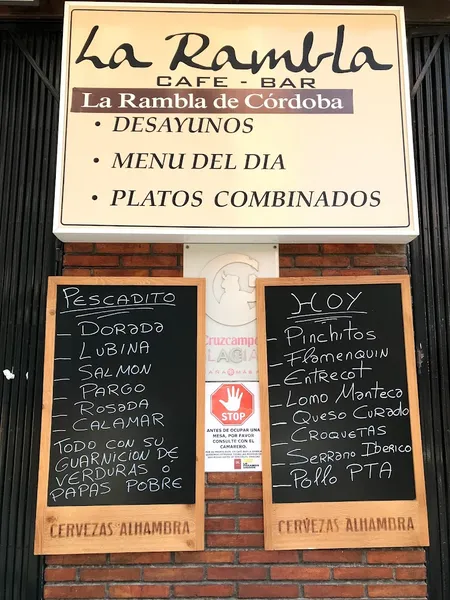 La Rambla
CAFE - BAR
La Rambla de Córdoba
• DESAYUNOS
• MENU DEL DIA
• PLATOS COMBINADOS
PESCADITO
- DORADA
- LUBINA
- SALMON
- PARGO
- ROSADA
- CALAMAR
TODO CON SU
GUARNICION DE
VERDURAS O
PAPAS POBRE
CERVEZAS ALHAMBRA
Cruzcampo
STOP
ANTES DE OCUPAR UNA
MESA, POR FAVOR
CONSULTE CON EL
CAMARERO.
HOY
- PINCHITOS
- FLAMENQUIN
- ENTRECOT
- LOMO MANTECA
- QUESO CURADO
- CROQUETAS
- SERRANO IBERICO
- POLLO PTA
CERVEZAS ALHAMBRA